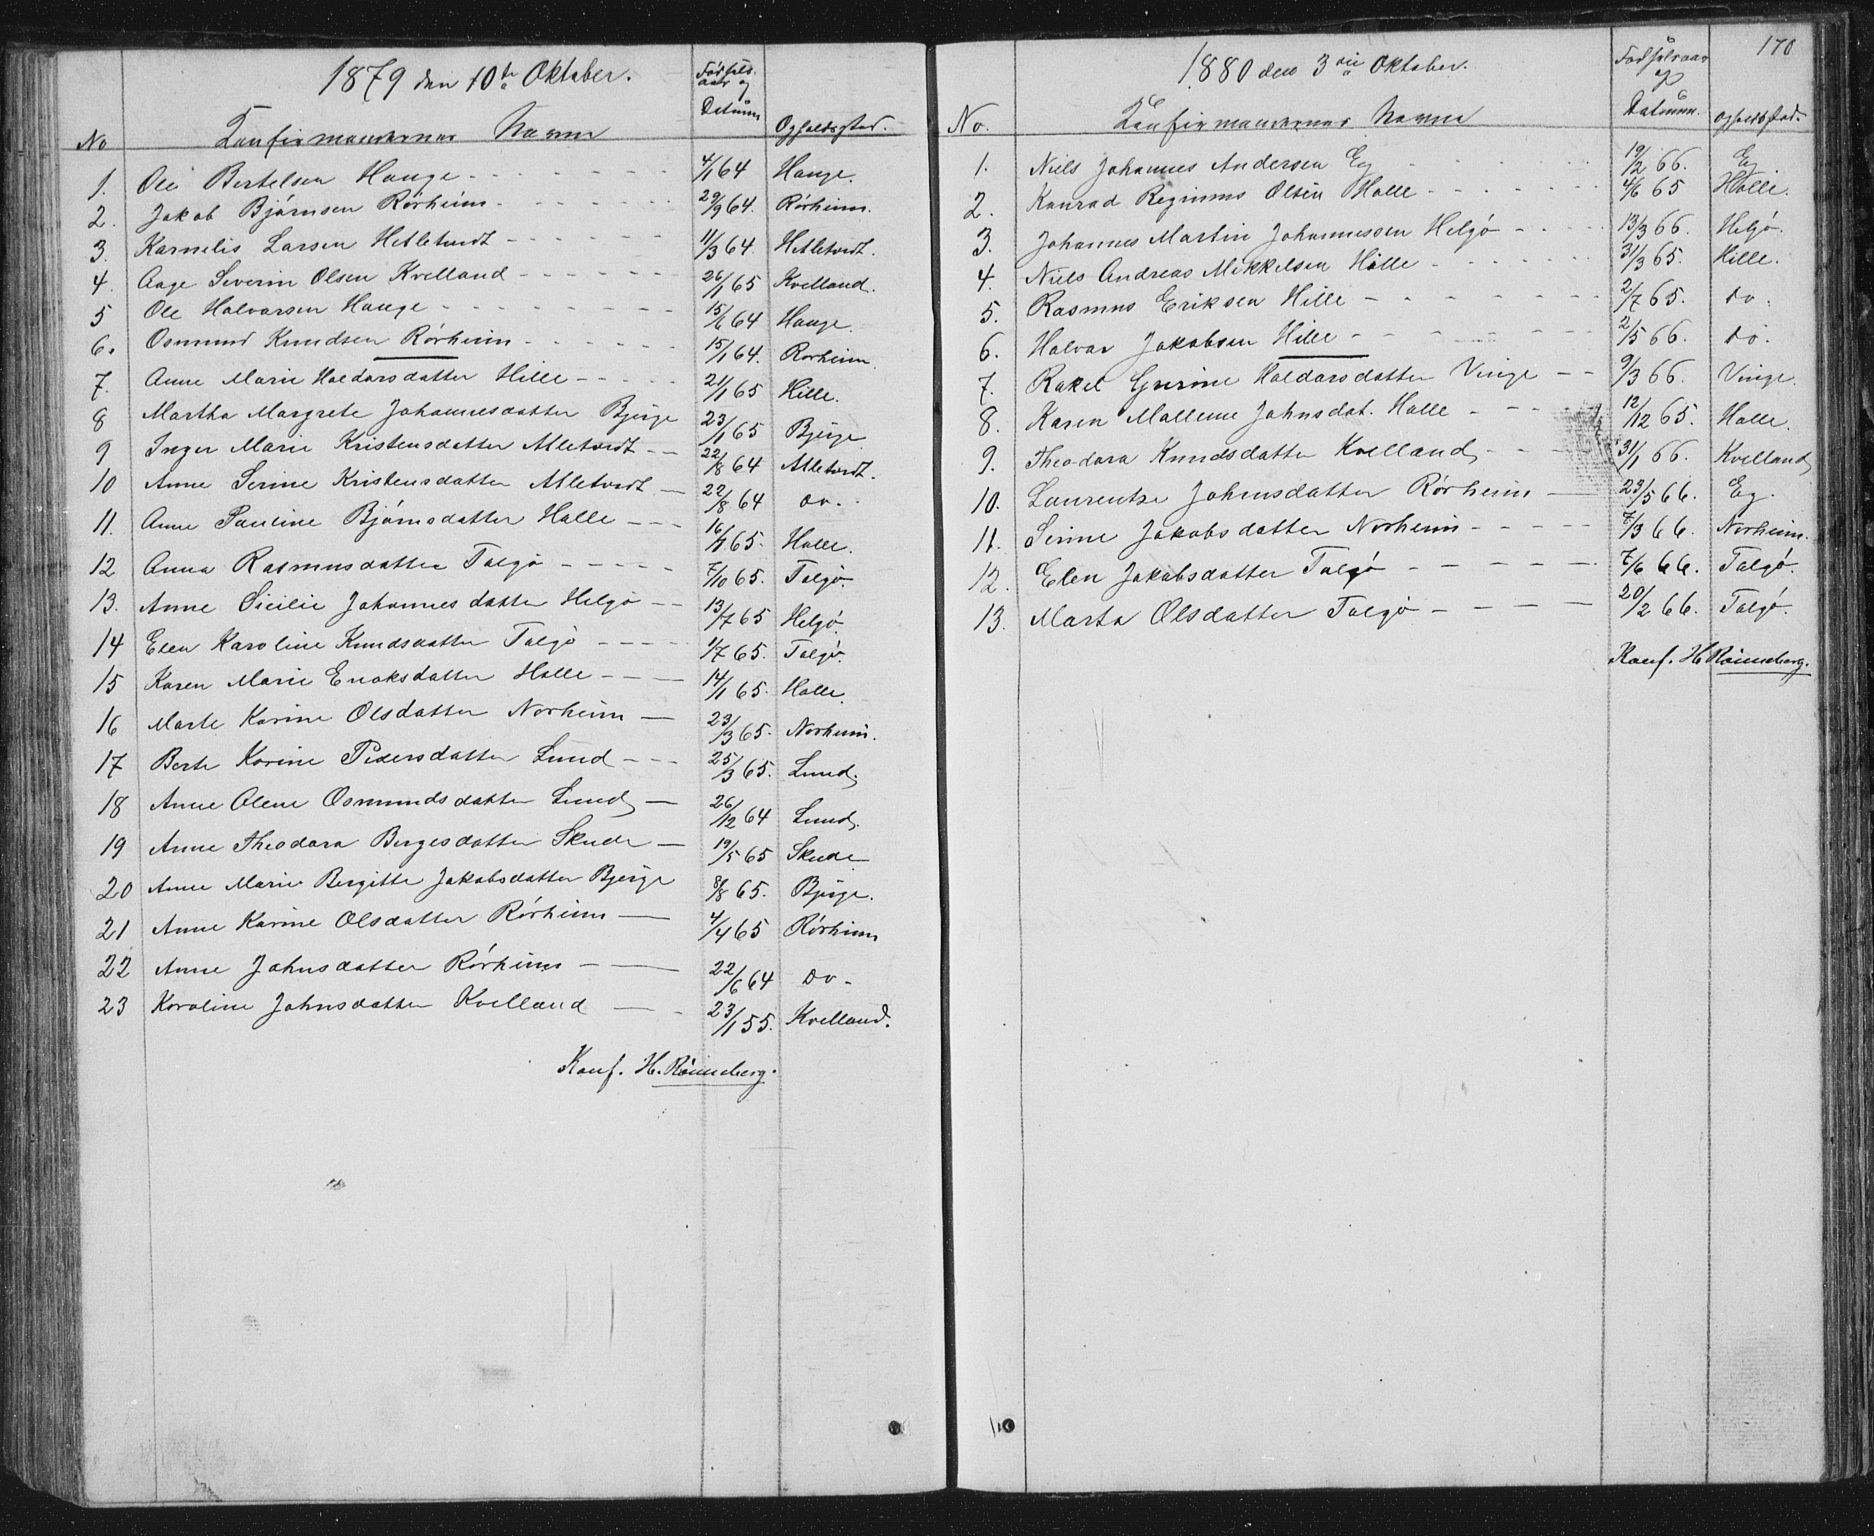 1879 den 10de Oktober.
Fødsels-
aar og
Datum
No Konfirmandernes Navne Opholdssted.
1. Ole Bertelsen Hauge 4/1 64 Hauge.
2. Jakob Bjørnsen Rørheim 29/9 64. Rørheim.
3. Kornelis Larsen Hetletvedt 11/3 64 Hetletvedt.
4. Aage Severin Olsen Kvelland 26/1 65 Kvelland.
5 Ole Halvorsen Hauge 15/6 64 Hauge.
6. Osmund Knudsen Rørheim 15/1 64. Rørheim.
7. Anne Marie Haldorsdatter Hille 21/1 65 Hille.
8 Martha Margrete Johannesdatter Bjerge 23/1 65 Bjerge
9 Inger Marie Kristensdatter Atletvedt 22/8 64 Atletvedt.
10 Anne Serine Kristensdatter Atletvedt 22/8 64 do.
11. Anne Pauline Bjørnsdatter Halle 16/1 65. Halle.
12 Anna Rasmusdatter Talgø 7/10 65. Talgø.
13. Anne Sicilie Johannesdatter Helgø 13/7 65 Helgø.
14 Elen Karoline Knudsdatter Talgø 1/7 65. Talgø.
15 Karen Marie Enoksdatter Halle 14/1 65. Halle.
16 Marte Karine Olsdatter Norheim 23/3 65. Norheim.
17 Berte Karine Pedersdatter Lund 25/3 65. Lund.
18 Anne Olene Osmundsdatter Lund 26/12 64 Lund.
19 Anne Theodora Bergesdatter Skude 19/5 65 Skude
20 Anne Marie Bergitte Jakobsdatter Bjerge 8/8 65. Bjerge.
21 Anne Karine Olsdatter Rørheim 4/4 65 Rørheim
22 Anne Johnsdatter Rørheim 22/6 64 do.
23 Karoline Johnsdatter Kvelland 23/1 55. Kvelland.
Konf. H. Rønneberg.
170
1880 den 3die Oktober.
Fødselsaar
og
Datum.
No. Konfirmandernes Navne Opholdsted.
1. Niels Johannes Andersen Eg 19/2 66. Eg
2. Konrad Reginius Olsen Halle 4/6 65 Halle.
3. Johannes Martin Johannessen Helgø 13/3 66. Helgø.
4. Niels Andreas Mikkelsen Hille 31/3 65. Hille.
5. Rasmus Eriksen Hille 2/7 65. do.
6. Halvor Jakobsen Hille 2/5 66. do.
7. Rakel Gurine Haldorsdatter Vinge 9/3 66. Vinge.
8. Karen Mallene Johnsdat. Halle 12/12 65. Halle.
9. Theodora Knudsdatter Kvelland 31/1 66. Kvelland
10. Laurentze Johnsdatter Rørheim 23/5 66. Eg.
11. Serine Jakobsdatter Norheim 7/3 66. Norheim.
12. Elen Jakobsdatter Talgø 7/6 66. Talgø.
13. Marta Olsdatter Talgø 20/2 66. Talgø.
Konf. H. Rønneberg.